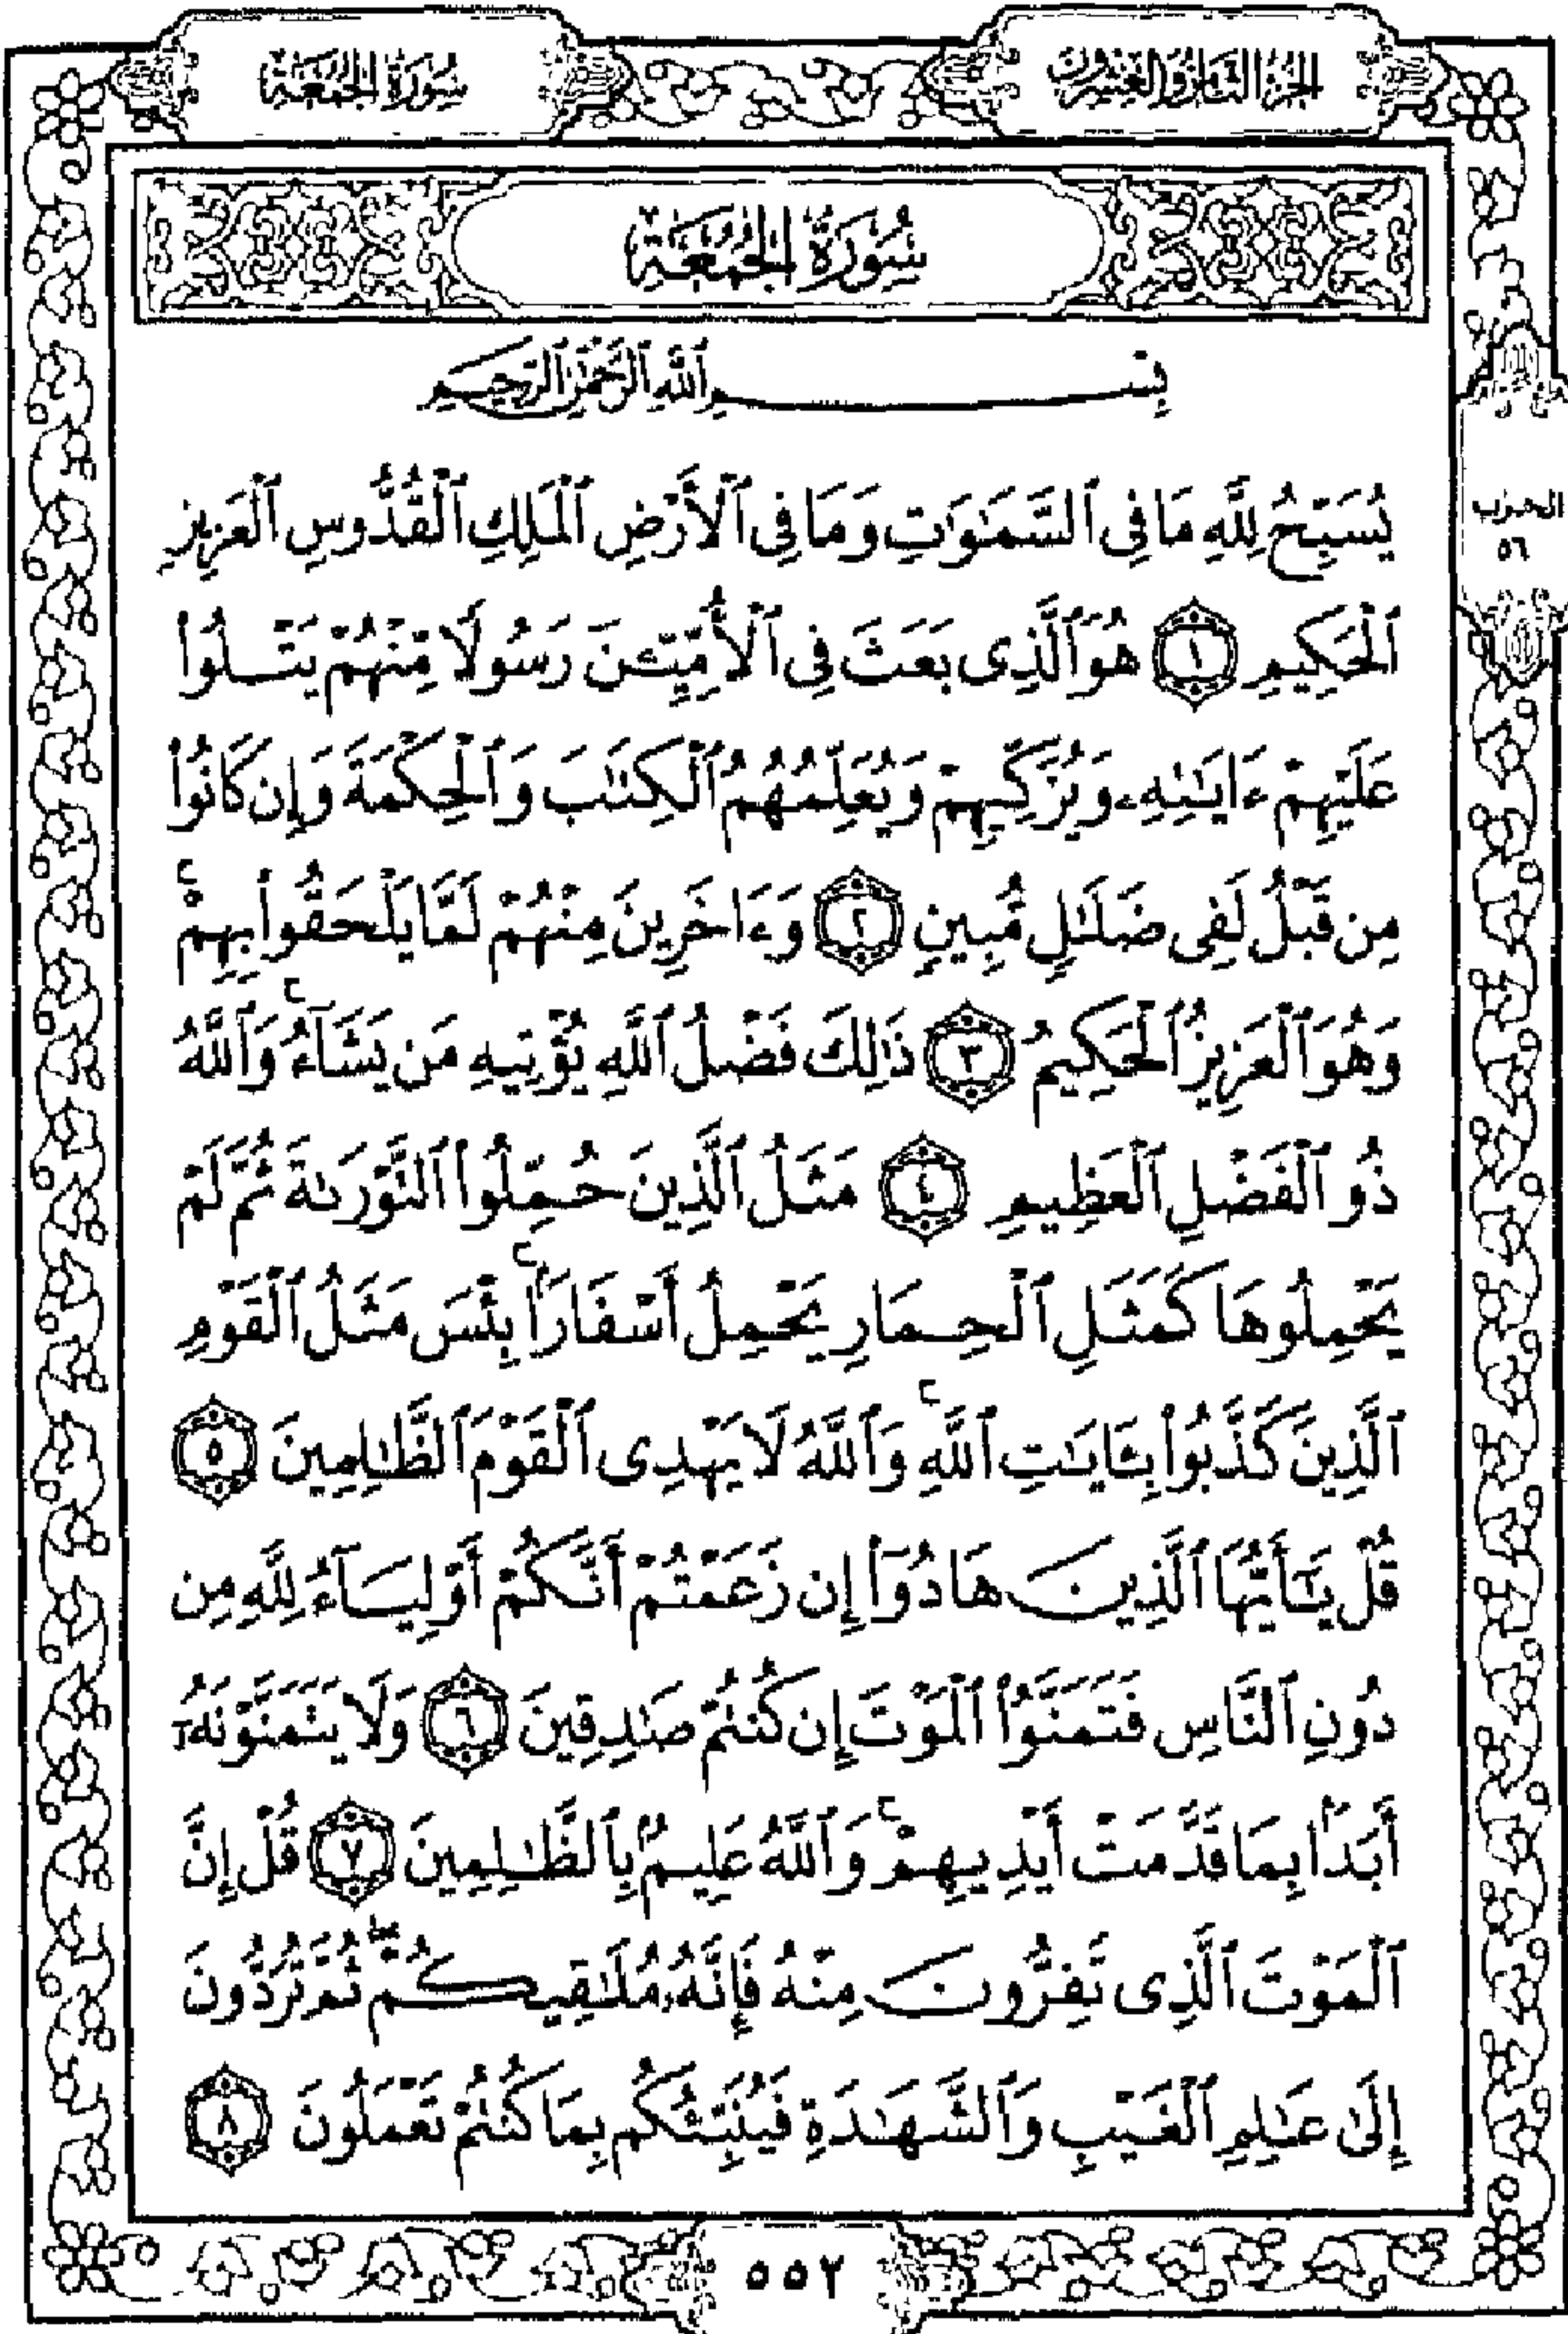 الجزء الثامن والعشرون
سورة الجمعة
سُورَةُ الجُمُعَةِ
بِسْمِ ٱللَّهِ ٱلرَّحْمَٰنِ ٱلرَّحِيمِ
يُسَبِّحُ لِلَّهِ مَا فِى ٱلسَّمَٰوَٰتِ وَمَا فِى ٱلْأَرْضِ ٱلْمَلِكِ ٱلْقُدُّوسِ ٱلْعَزِيزِ
ٱلْحَكِيمِ ١ هُوَ ٱلَّذِى بَعَثَ فِى ٱلْأُمِّيِّـۧنَ رَسُولًا مِّنْهُمْ يَتْلُوا۟
عَلَيْهِمْ ءَايَٰتِهِۦ وَيُزَكِّيهِمْ وَيُعَلِّمُهُمُ ٱلْكِتَٰبَ وَٱلْحِكْمَةَ وَإِن كَانُوا۟
مِن قَبْلُ لَفِى ضَلَٰلٍ مُّبِينٍ ٢ وَءَاخَرِينَ مِنْهُمْ لَمَّا يَلْحَقُوا۟ بِهِمْ ۚ
وَهُوَ ٱلْعَزِيزُ ٱلْحَكِيمُ ٣ ذَٰلِكَ فَضْلُ ٱللَّهِ يُؤْتِيهِ مَن يَشَآءُ ۚ وَٱللَّهُ
ذُو ٱلْفَضْلِ ٱلْعَظِيمِ ٤ مَثَلُ ٱلَّذِينَ حُمِّلُوا۟ ٱلتَّوْرَىٰةَ ثُمَّ لَمْ
يَحْمِلُوهَا كَمَثَلِ ٱلْحِمَارِ يَحْمِلُ أَسْفَارًۢا ۚ بِئْسَ مَثَلُ ٱلْقَوْمِ
ٱلَّذِينَ كَذَّبُوا۟ بِـَٔايَٰتِ ٱللَّهِ ۚ وَٱللَّهُ لَا يَهْدِى ٱلْقَوْمَ ٱلظَّٰلِمِينَ ٥
قُلْ يَٰٓأَيُّهَا ٱلَّذِينَ هَادُوٓا۟ إِن زَعَمْتُمْ أَنَّكُمْ أَوْلِيَآءُ لِلَّهِ مِن
دُونِ ٱلنَّاسِ فَتَمَنَّوُا۟ ٱلْمَوْتَ إِن كُنتُمْ صَٰدِقِينَ ٦ وَلَا يَتَمَنَّوْنَهُۥٓ
أَبَدًۢا بِمَا قَدَّمَتْ أَيْدِيهِمْ ۚ وَٱللَّهُ عَلِيمٌۢ بِٱلظَّٰلِمِينَ ٧ قُلْ إِنَّ
ٱلْمَوْتَ ٱلَّذِى تَفِرُّونَ مِنْهُ فَإِنَّهُۥ مُلَٰقِيكُمْ ۖ ثُمَّ تُرَدُّونَ
إِلَىٰ عَٰلِمِ ٱلْغَيْبِ وَٱلشَّهَٰدَةِ فَيُنَبِّئُكُم بِمَا كُنتُمْ تَعْمَلُونَ ٨
الحزب
٥٦
٥٥٢